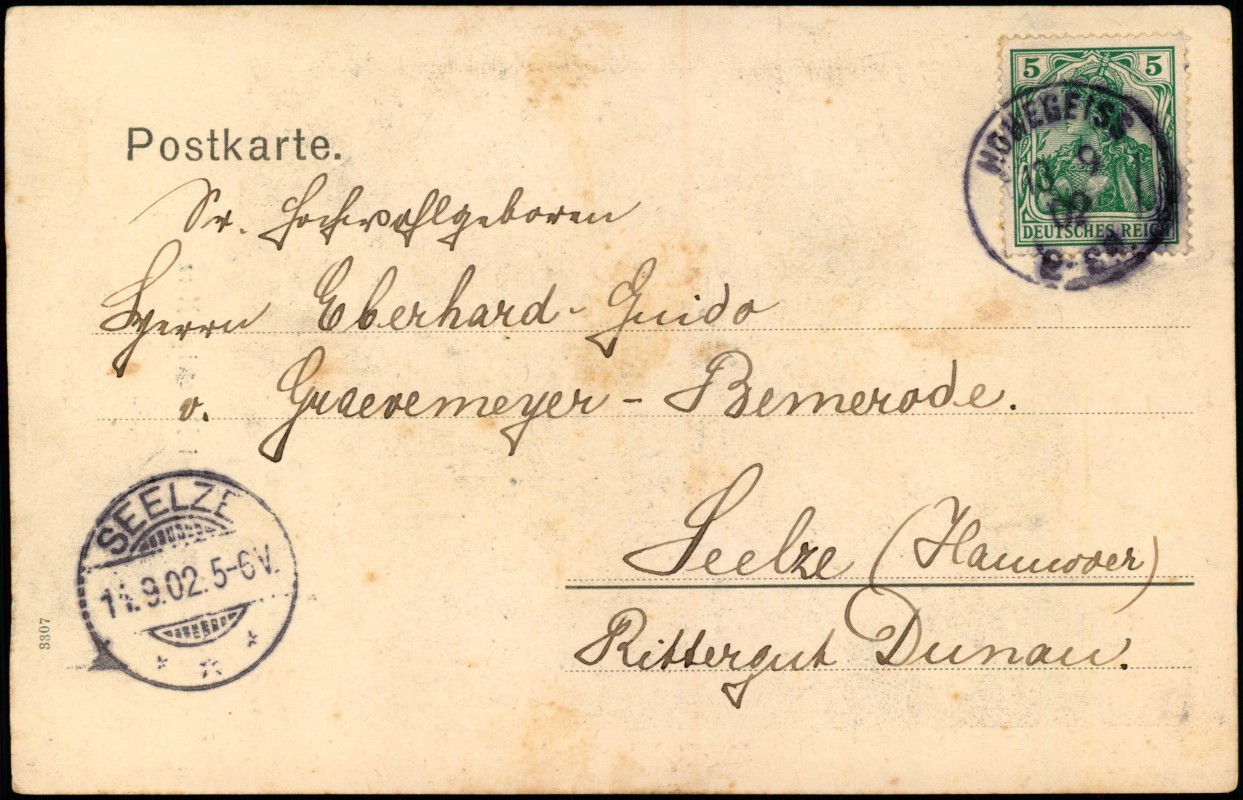 Postkarte.
5 5
DEUTSCHES REICH
HOHEGEISS
13 9
02
Sr. Hochwohlgeboren
Herrn Eberhard-Guido
v. Graevemeyer - Bemerode.
Seelze (Hannover)
Rittergut Dunau.
SEELZE
14.9.02.5-6V.
3307